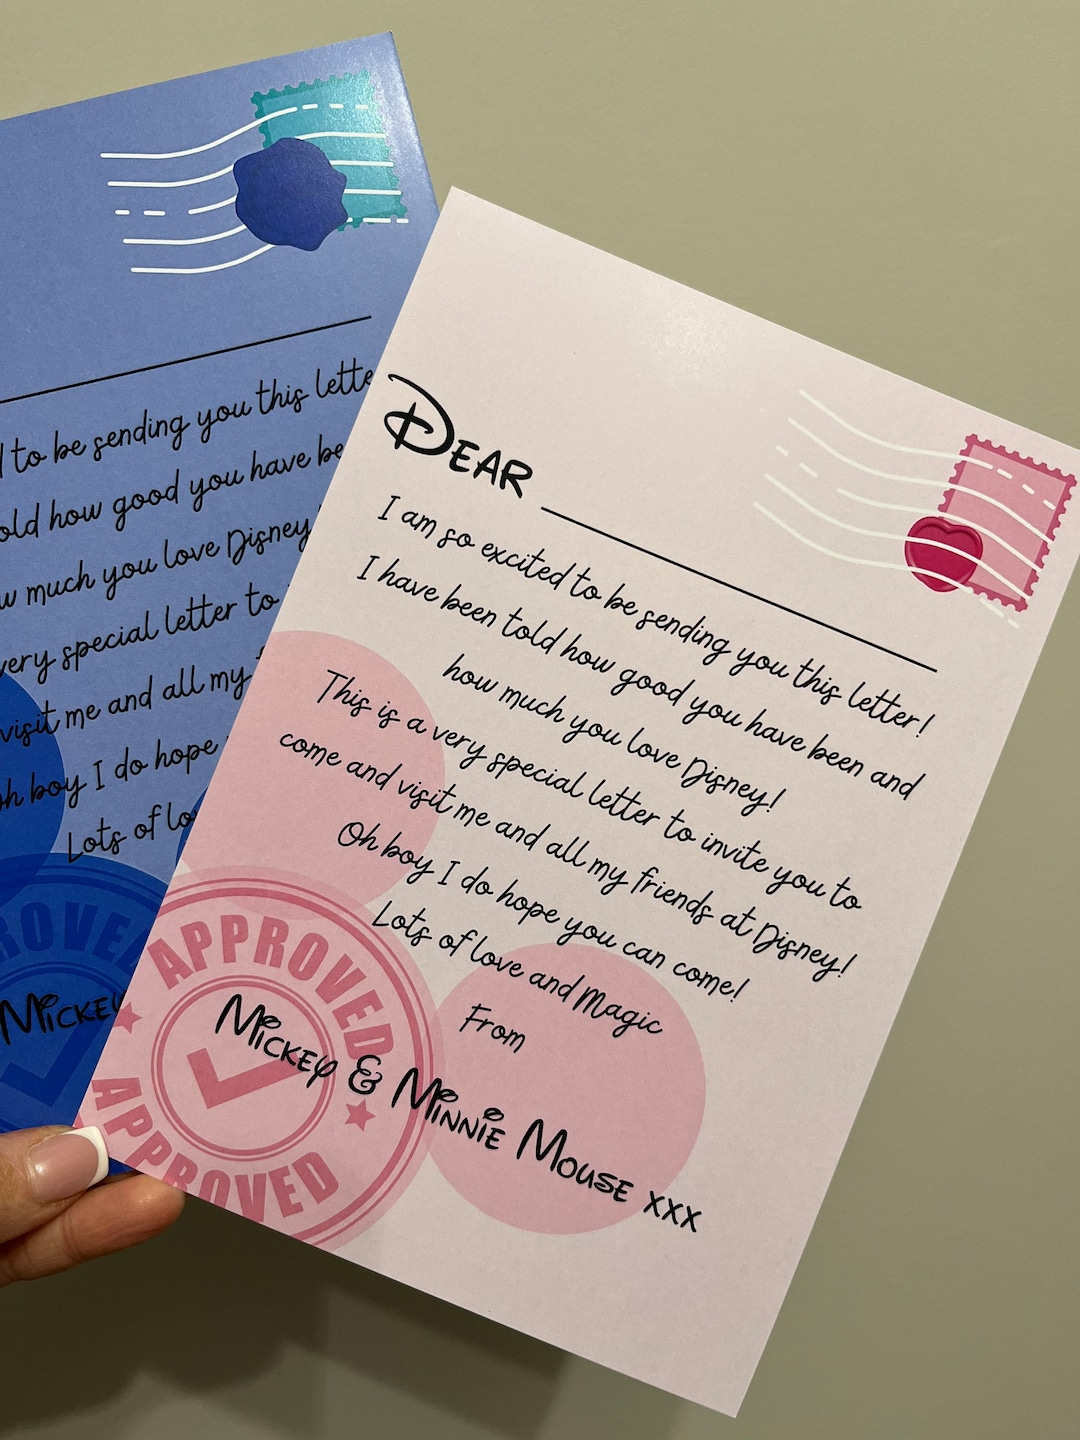 d to be sending you this lette
old how good you have be
w much you love Disney
very special letter to
visit me and all my
oh boy I do hope
Lots of lo
ROVE
MICKEY
DEAR
I am so excited to be sending you this letter!
I have been told how good you have been and
how much you love Disney!
This is a very special letter to invite you to
come and visit me and all my friends at Disney!
Oh boy I do hope you can come!
Lots of love and Magic
From
MICKEY & MINNIE MOUSE xxx
APPROVED
APPROVED